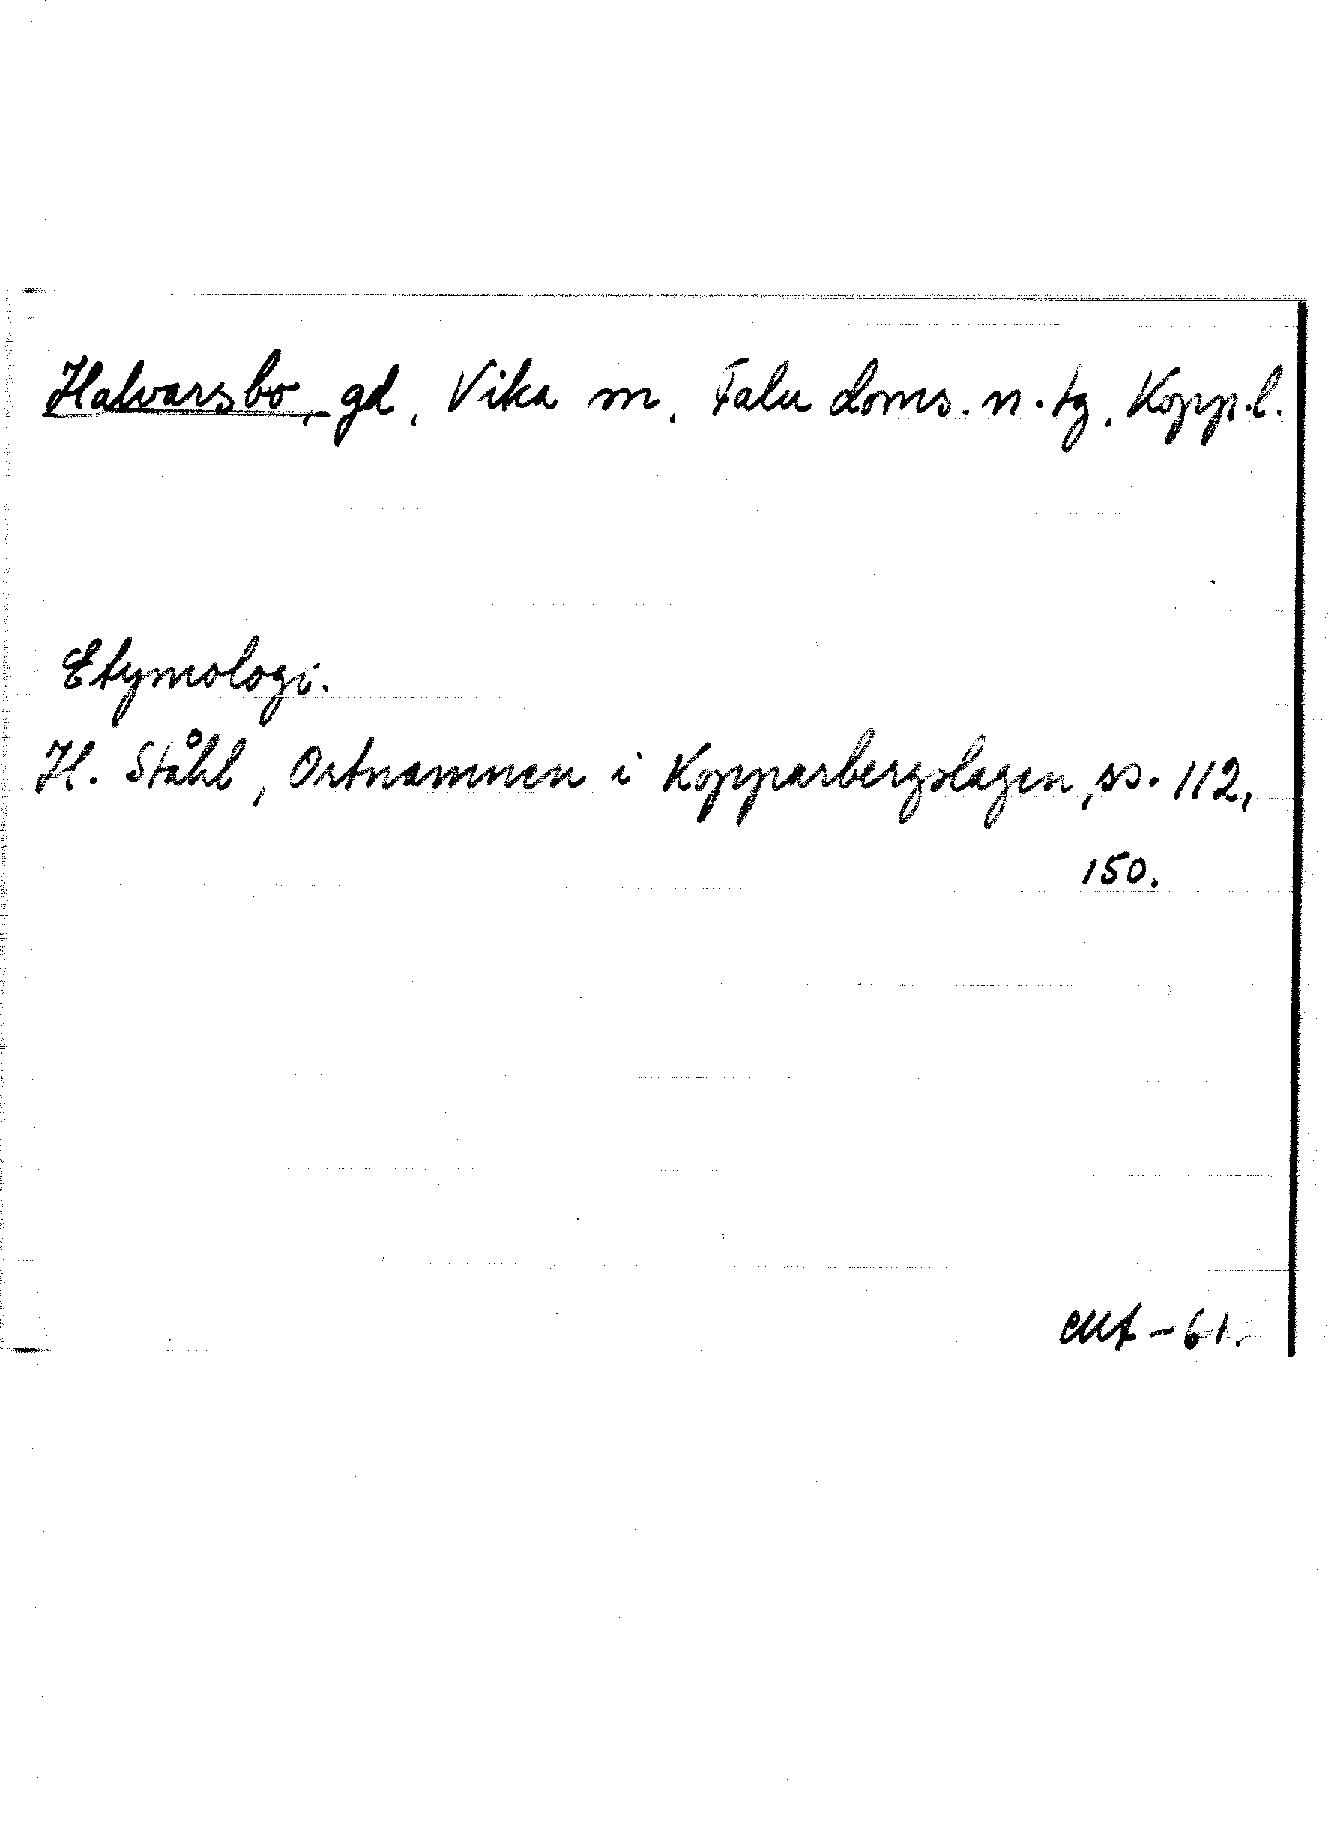 Halvarsbo, gd, Vika sn, Falu doms. n. tg, Kopp.l.
Etymologi.
H. Ståhl, Ortnamnen i Kopparbergslagen, ss. 112,
150.
-61.